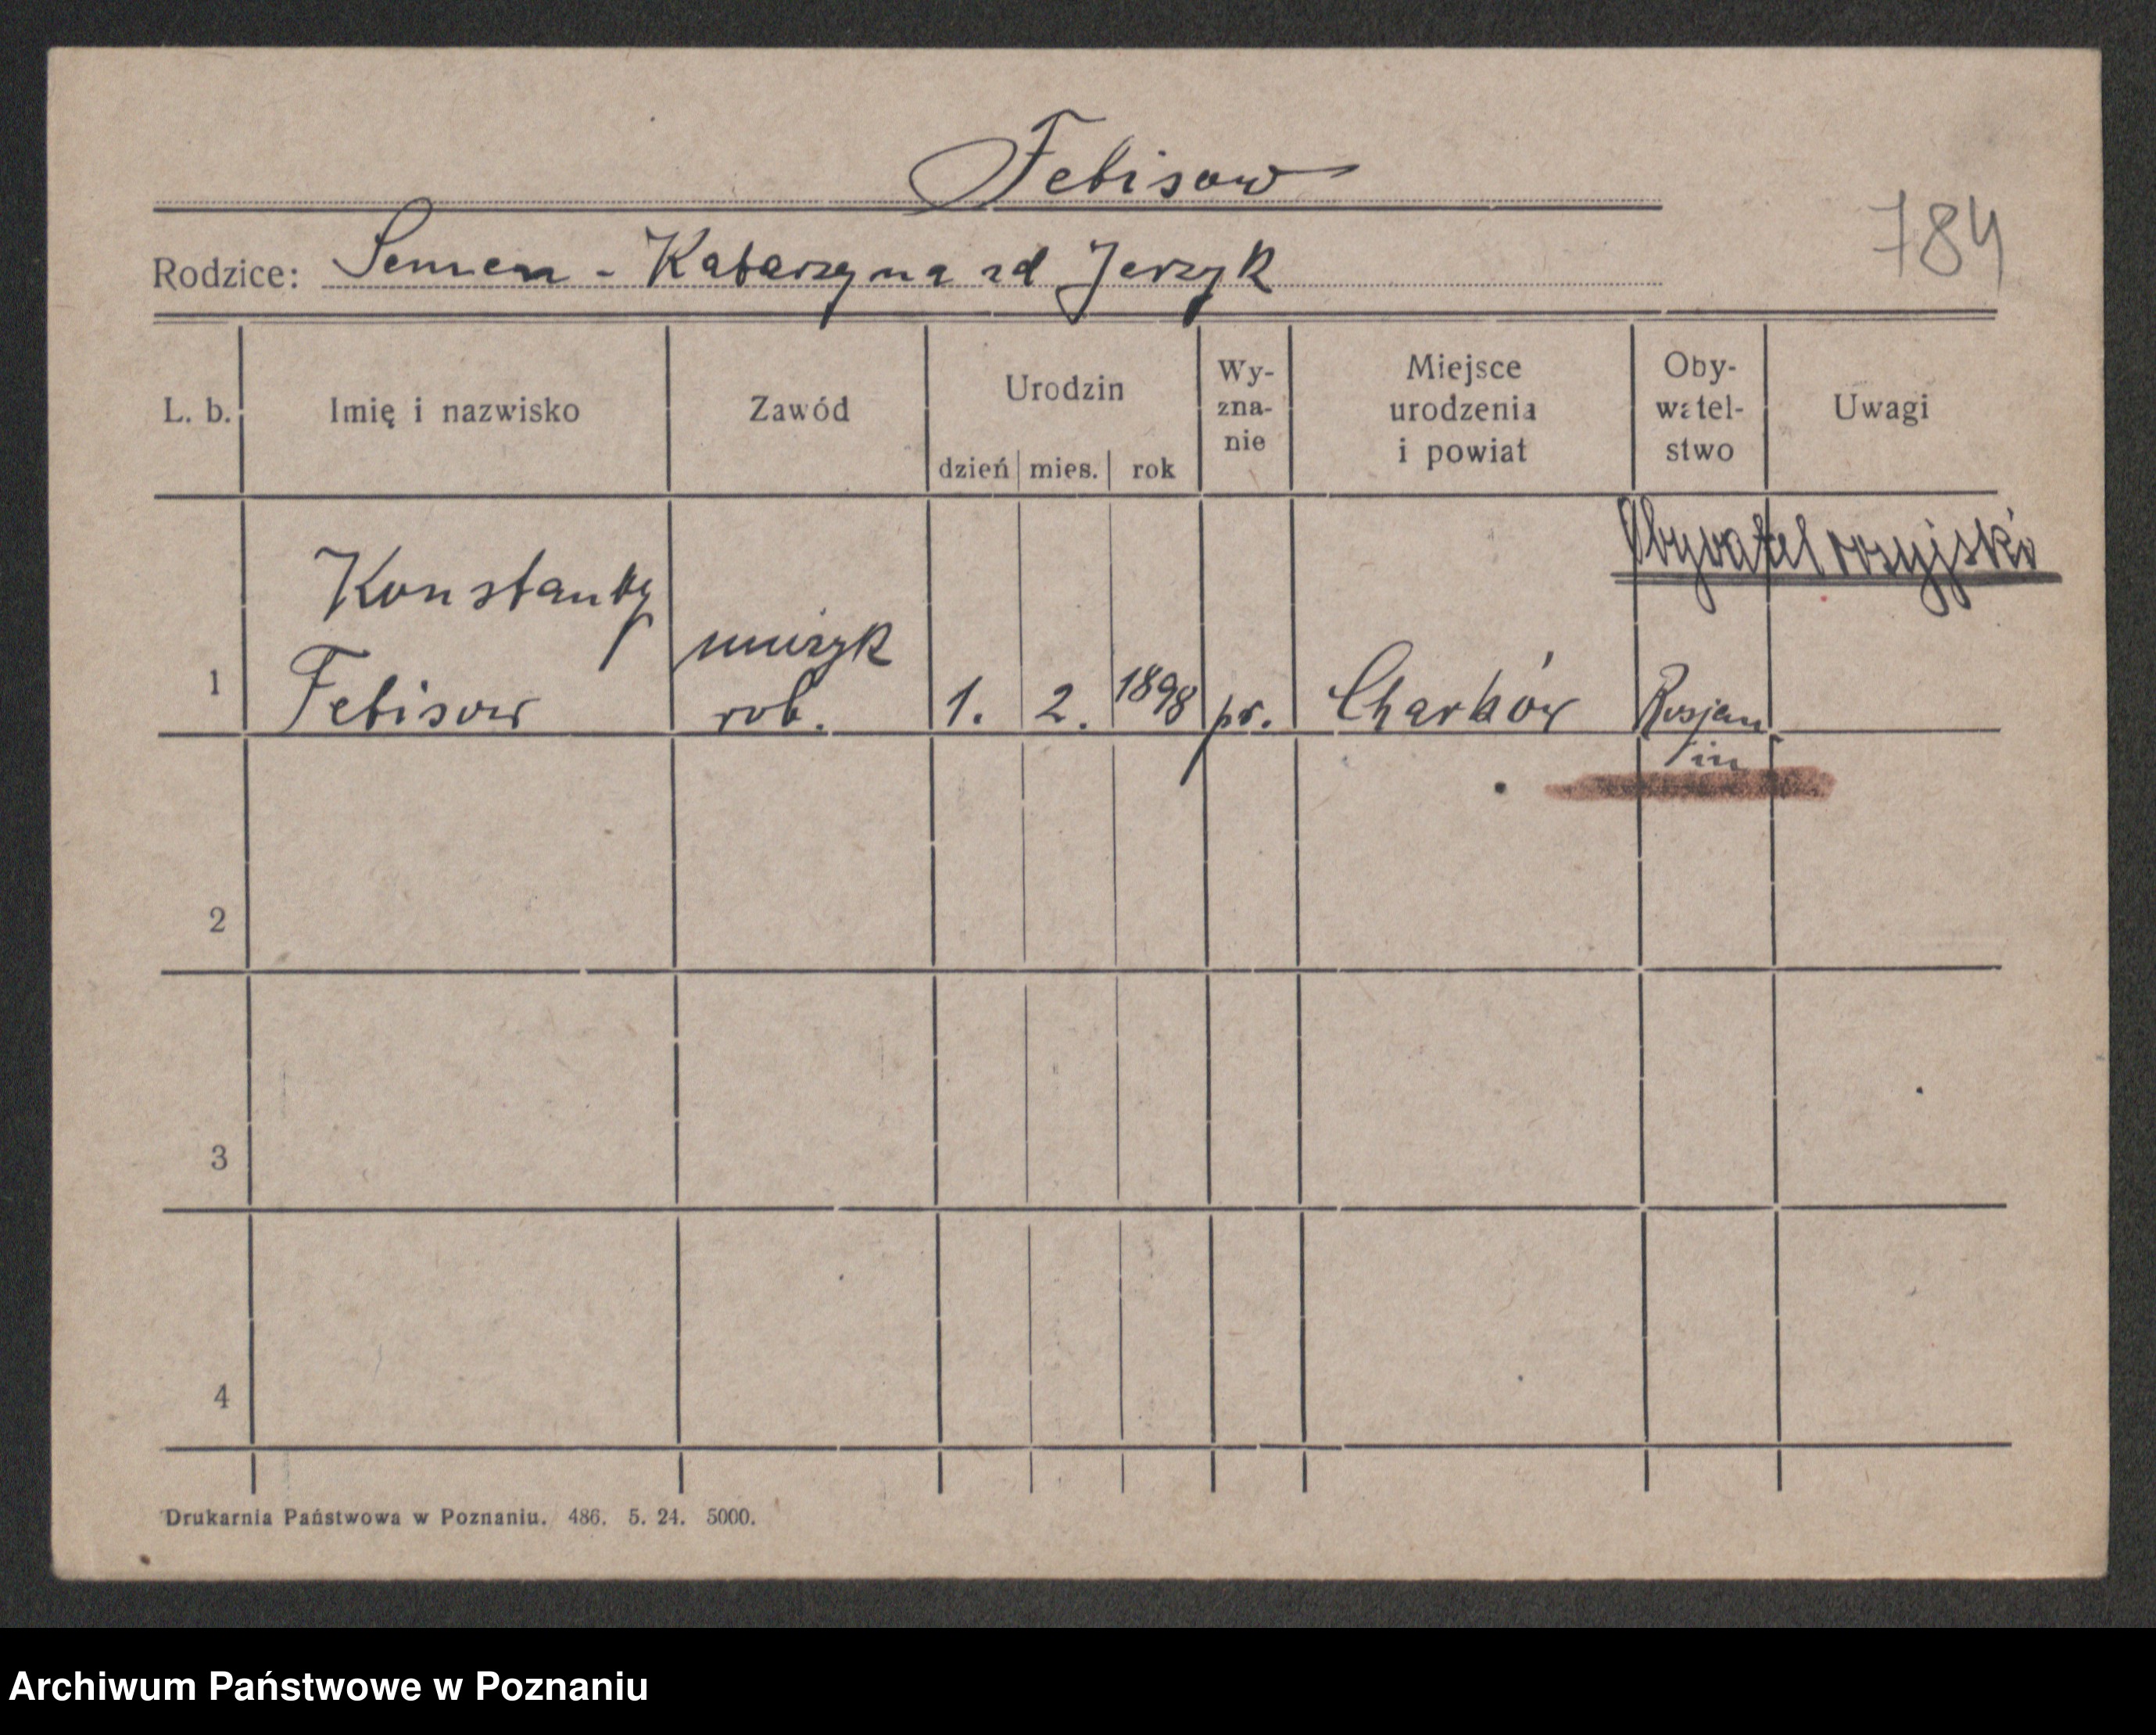 Febisow
784
Rodzice: Semen - Katarzyna zd Jerzyk
L. b. Imię i nazwisko Zawód Urodzin dzień mies. rok Wy-zna-nie Miejsce urodzenia i powiat Oby-watel-stwo Uwagi
Obywatel rosyjski
Konstanty
1 Febisow rob. 1. 2. 1898 pr. Charków Rosjan
in
2
3
4
Drukarnia Państwowa w Poznaniu. 486. 5. 24. 5000.
Archiwum Państwowe w Poznaniu